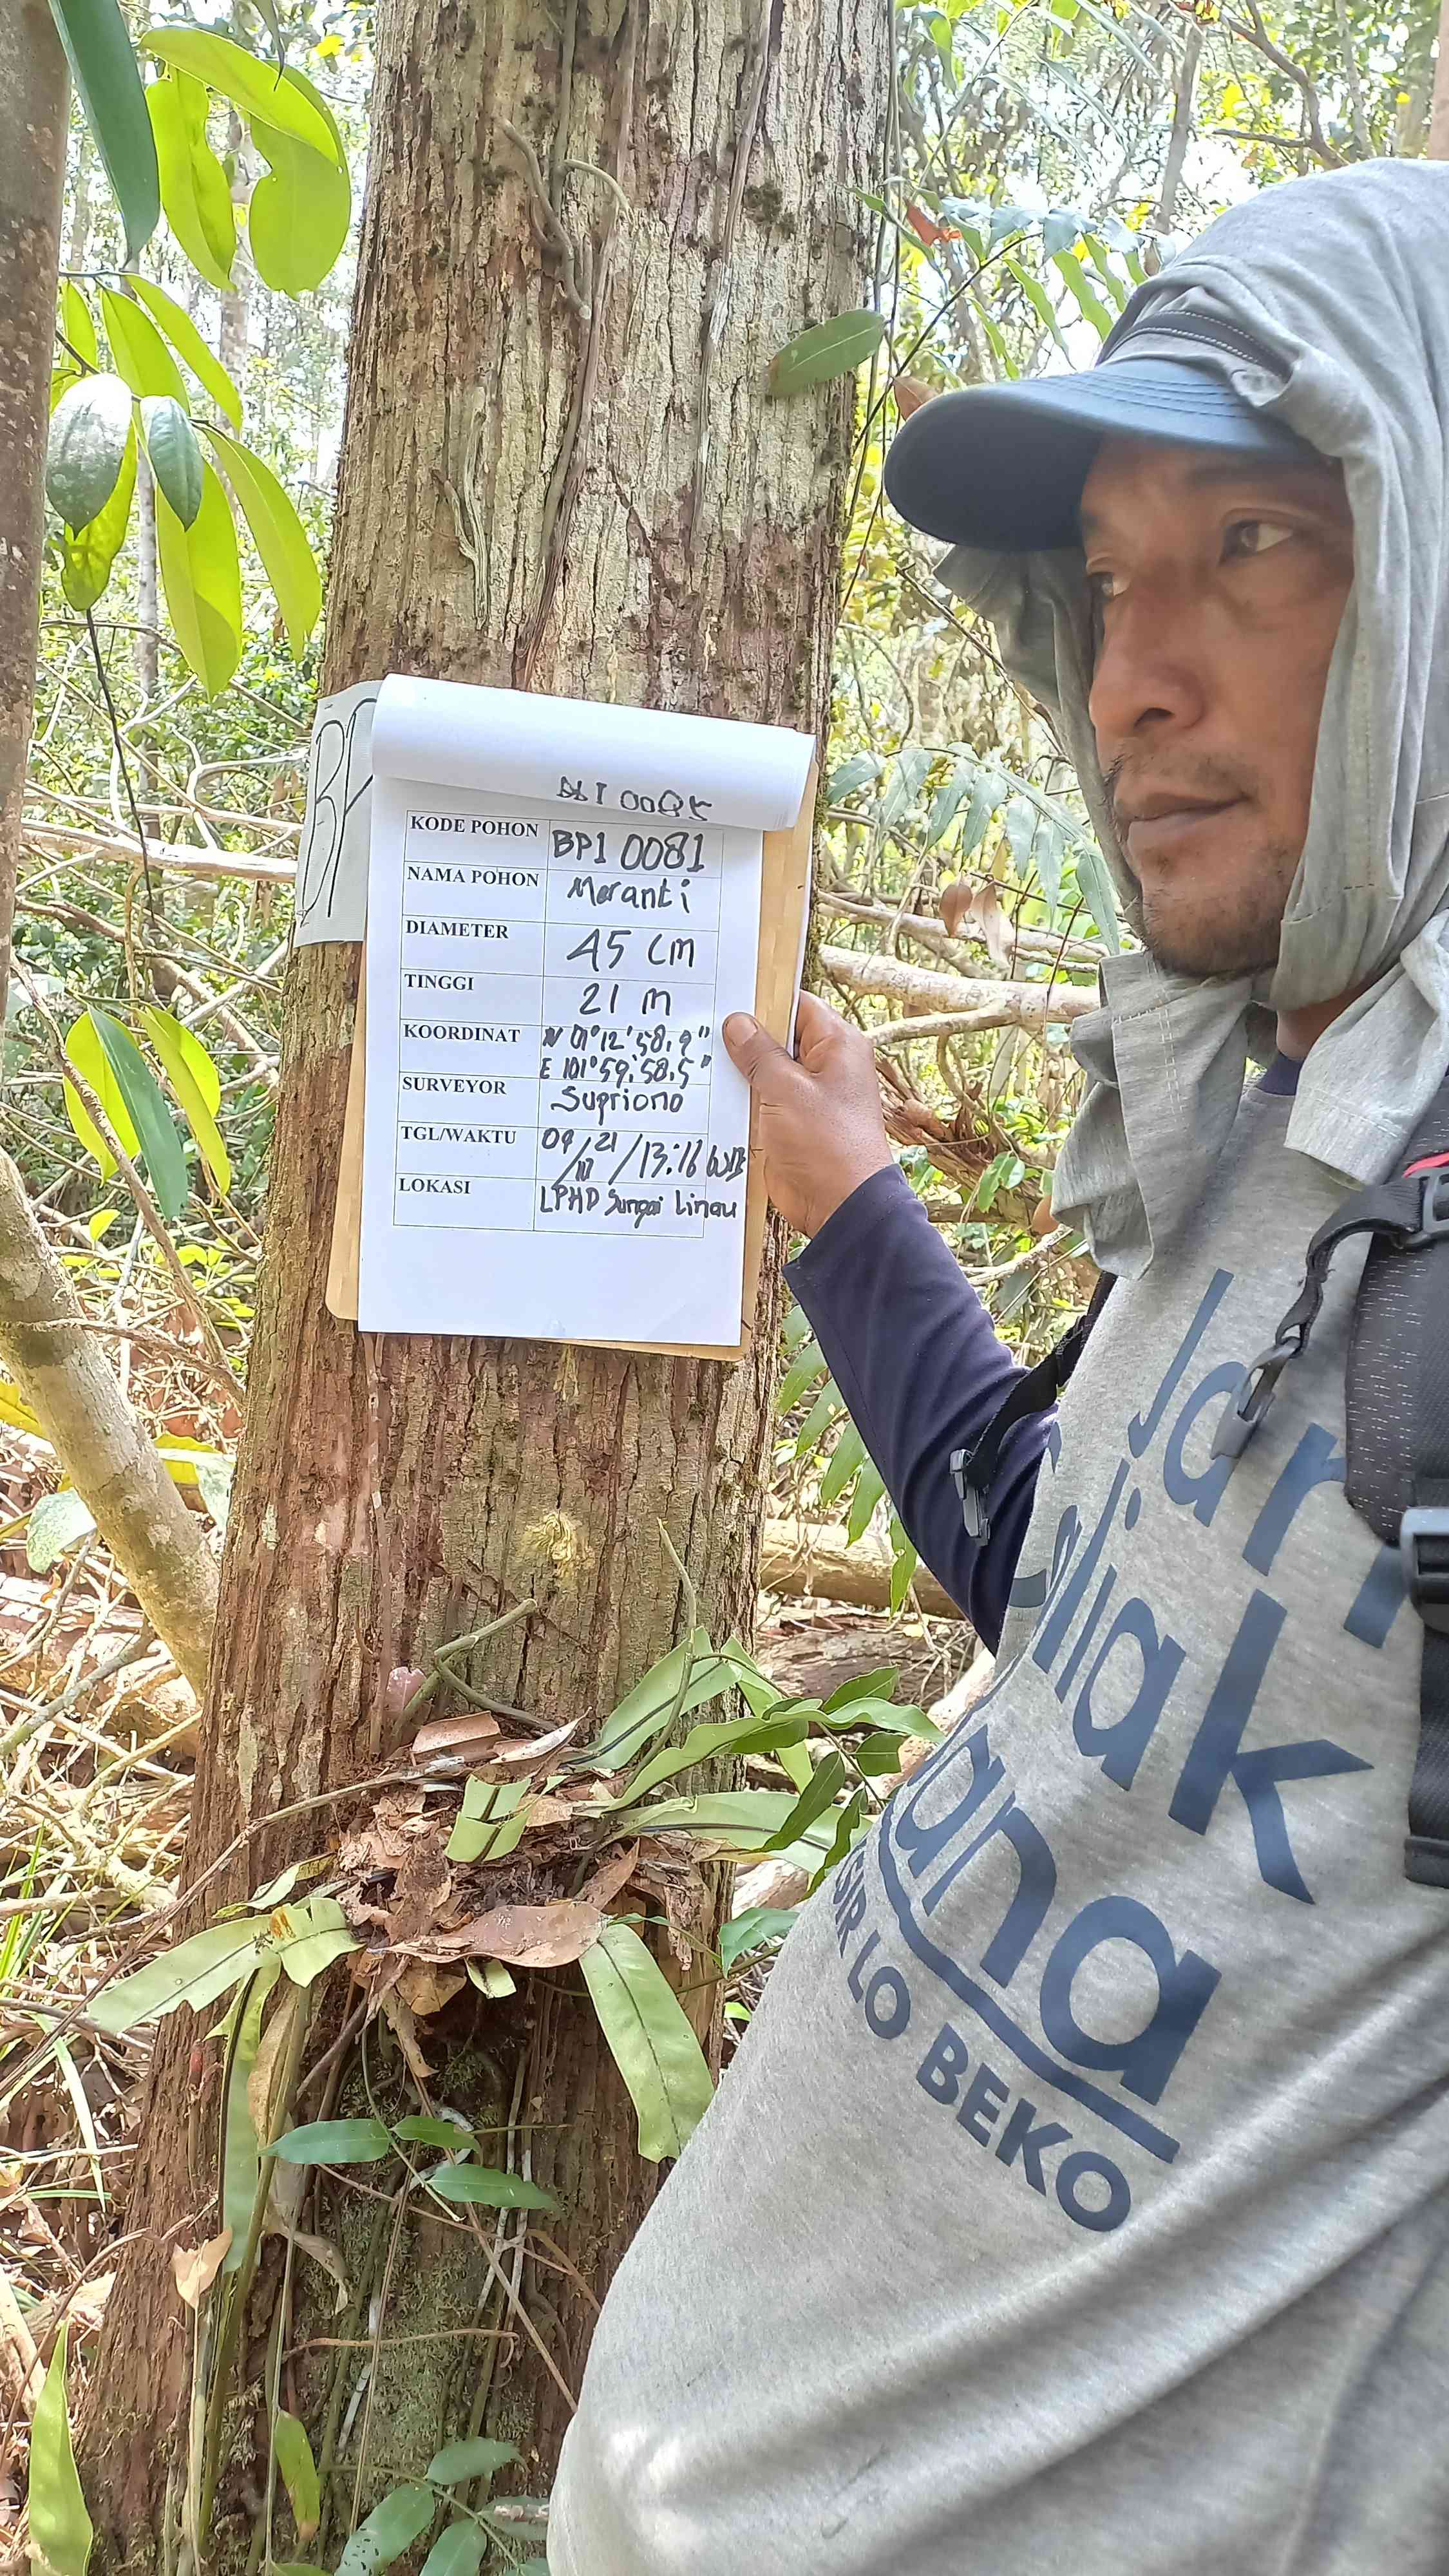 BP
KODE POHON BP1 0081
NAMA POHON Meranti
DIAMETER 45 cm
TINGGI 21 m
KOORDINAT N 01°12'58,9"
E 101°59'58,5"
SURVEYOR Supriono
TGL/WAKTU 09/10/21/13:16 WIB
LOKASI LPHD Sungai Linau
Jan
aliak
ana
SIR LO BEKO